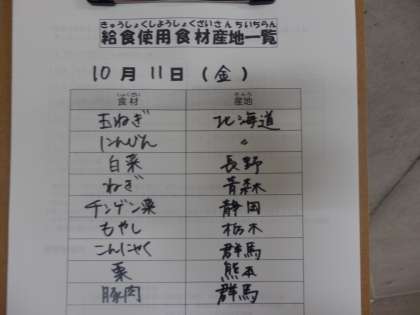 きゅうしょくしようしょくざいさんちいちらん
給食使用食材産地一覧
10月 11日 (金)
しょくざい さんち
食材 産地
玉ねぎ 北海道
にんじん 〃
白菜 長野
ねぎ 青森
チンゲン菜 静岡
もやし 栃木
こんにゃく 群馬
栗 熊本
豚肉 群馬